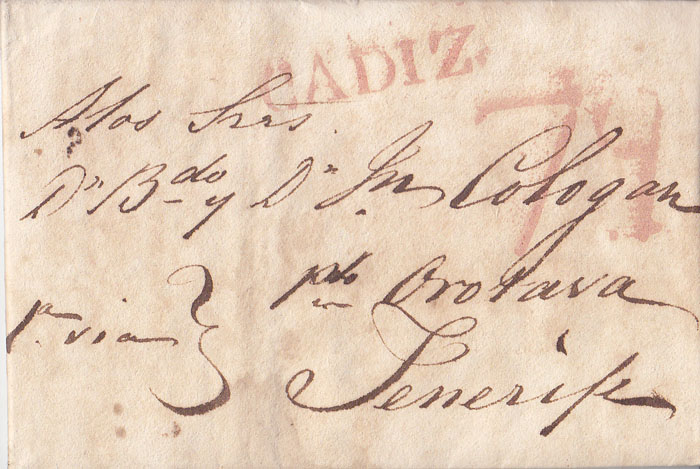 CADIZ.
A los Srrs.
Dn Bdo y Dn Jn Cologan
pto Orotava
1a via
Tenerife